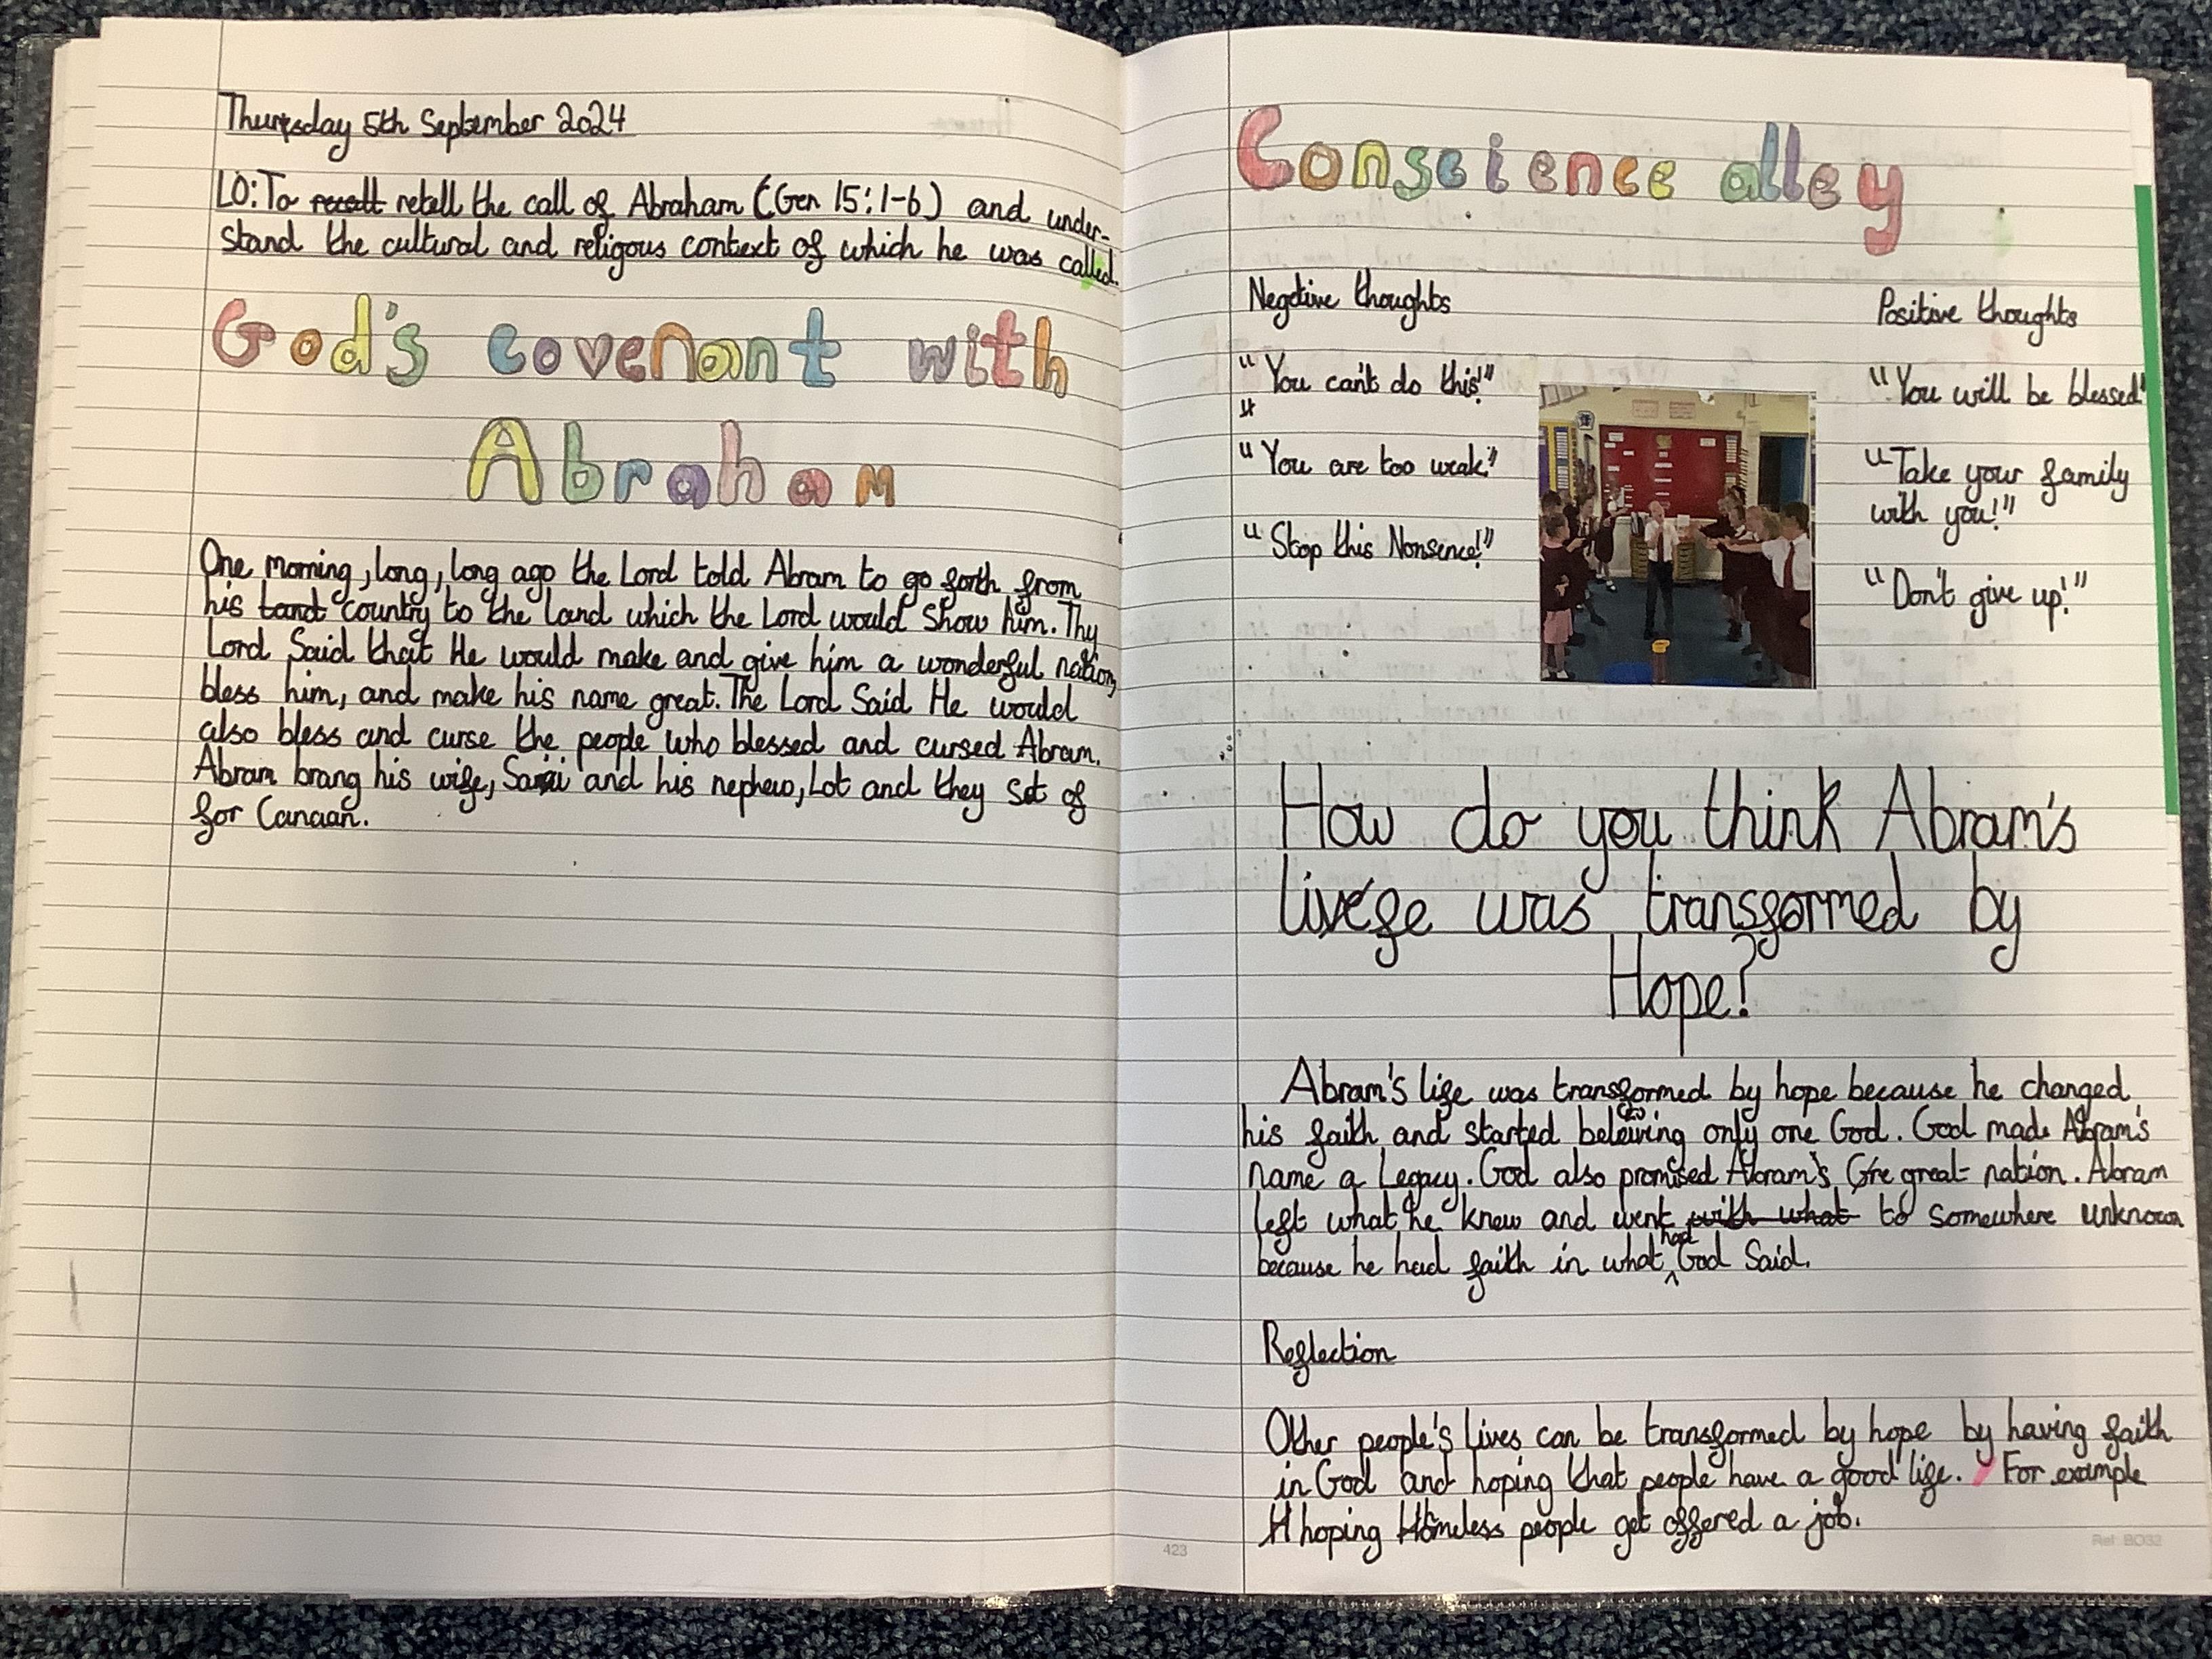 Thursday 5th September 2024
LO: To recall retell the call of Abraham (Gen 15:1-6) and under-
stand the cultural and religous context of which he was called.
God's covenant with
Abraham
One morning, long, long ago the Lord told Abram to go forth from
his land country to the land which the Lord would show him. Thy
Lord Said that He would make and give him a wonderful nation,
bless him, and make his name great. The Lord Said He would
also bless and curse the people who blessed and cursed Abram.
Abram brang his wife, Sarai and his nephew, Lot and they set of
for Canaan.
Conscience alley
Negitive thoughts
"You can't do this!"
"You are too weak!"
"Stop this Nonsence!"
Positive thoughts
"You will be blessed"
"Take your family
with you!"
"Don't give up!"
How do you think Abram's
life was transformed by
Hope?
Abram's life was transformed by hope because he changed
his faith and started beleiving only one God. God made Abram's
name a Legacy. God also promised Abram's Gre great nation. Abram
left what he knew and went with what to somewhere unknown
because he had faith in what had God Said.
Reflection
Other people's lives can be transformed by hope by having faith
in God and hoping that people have a good life. For example
H hoping Homeless people get offered a job.
423
Ref: BO32